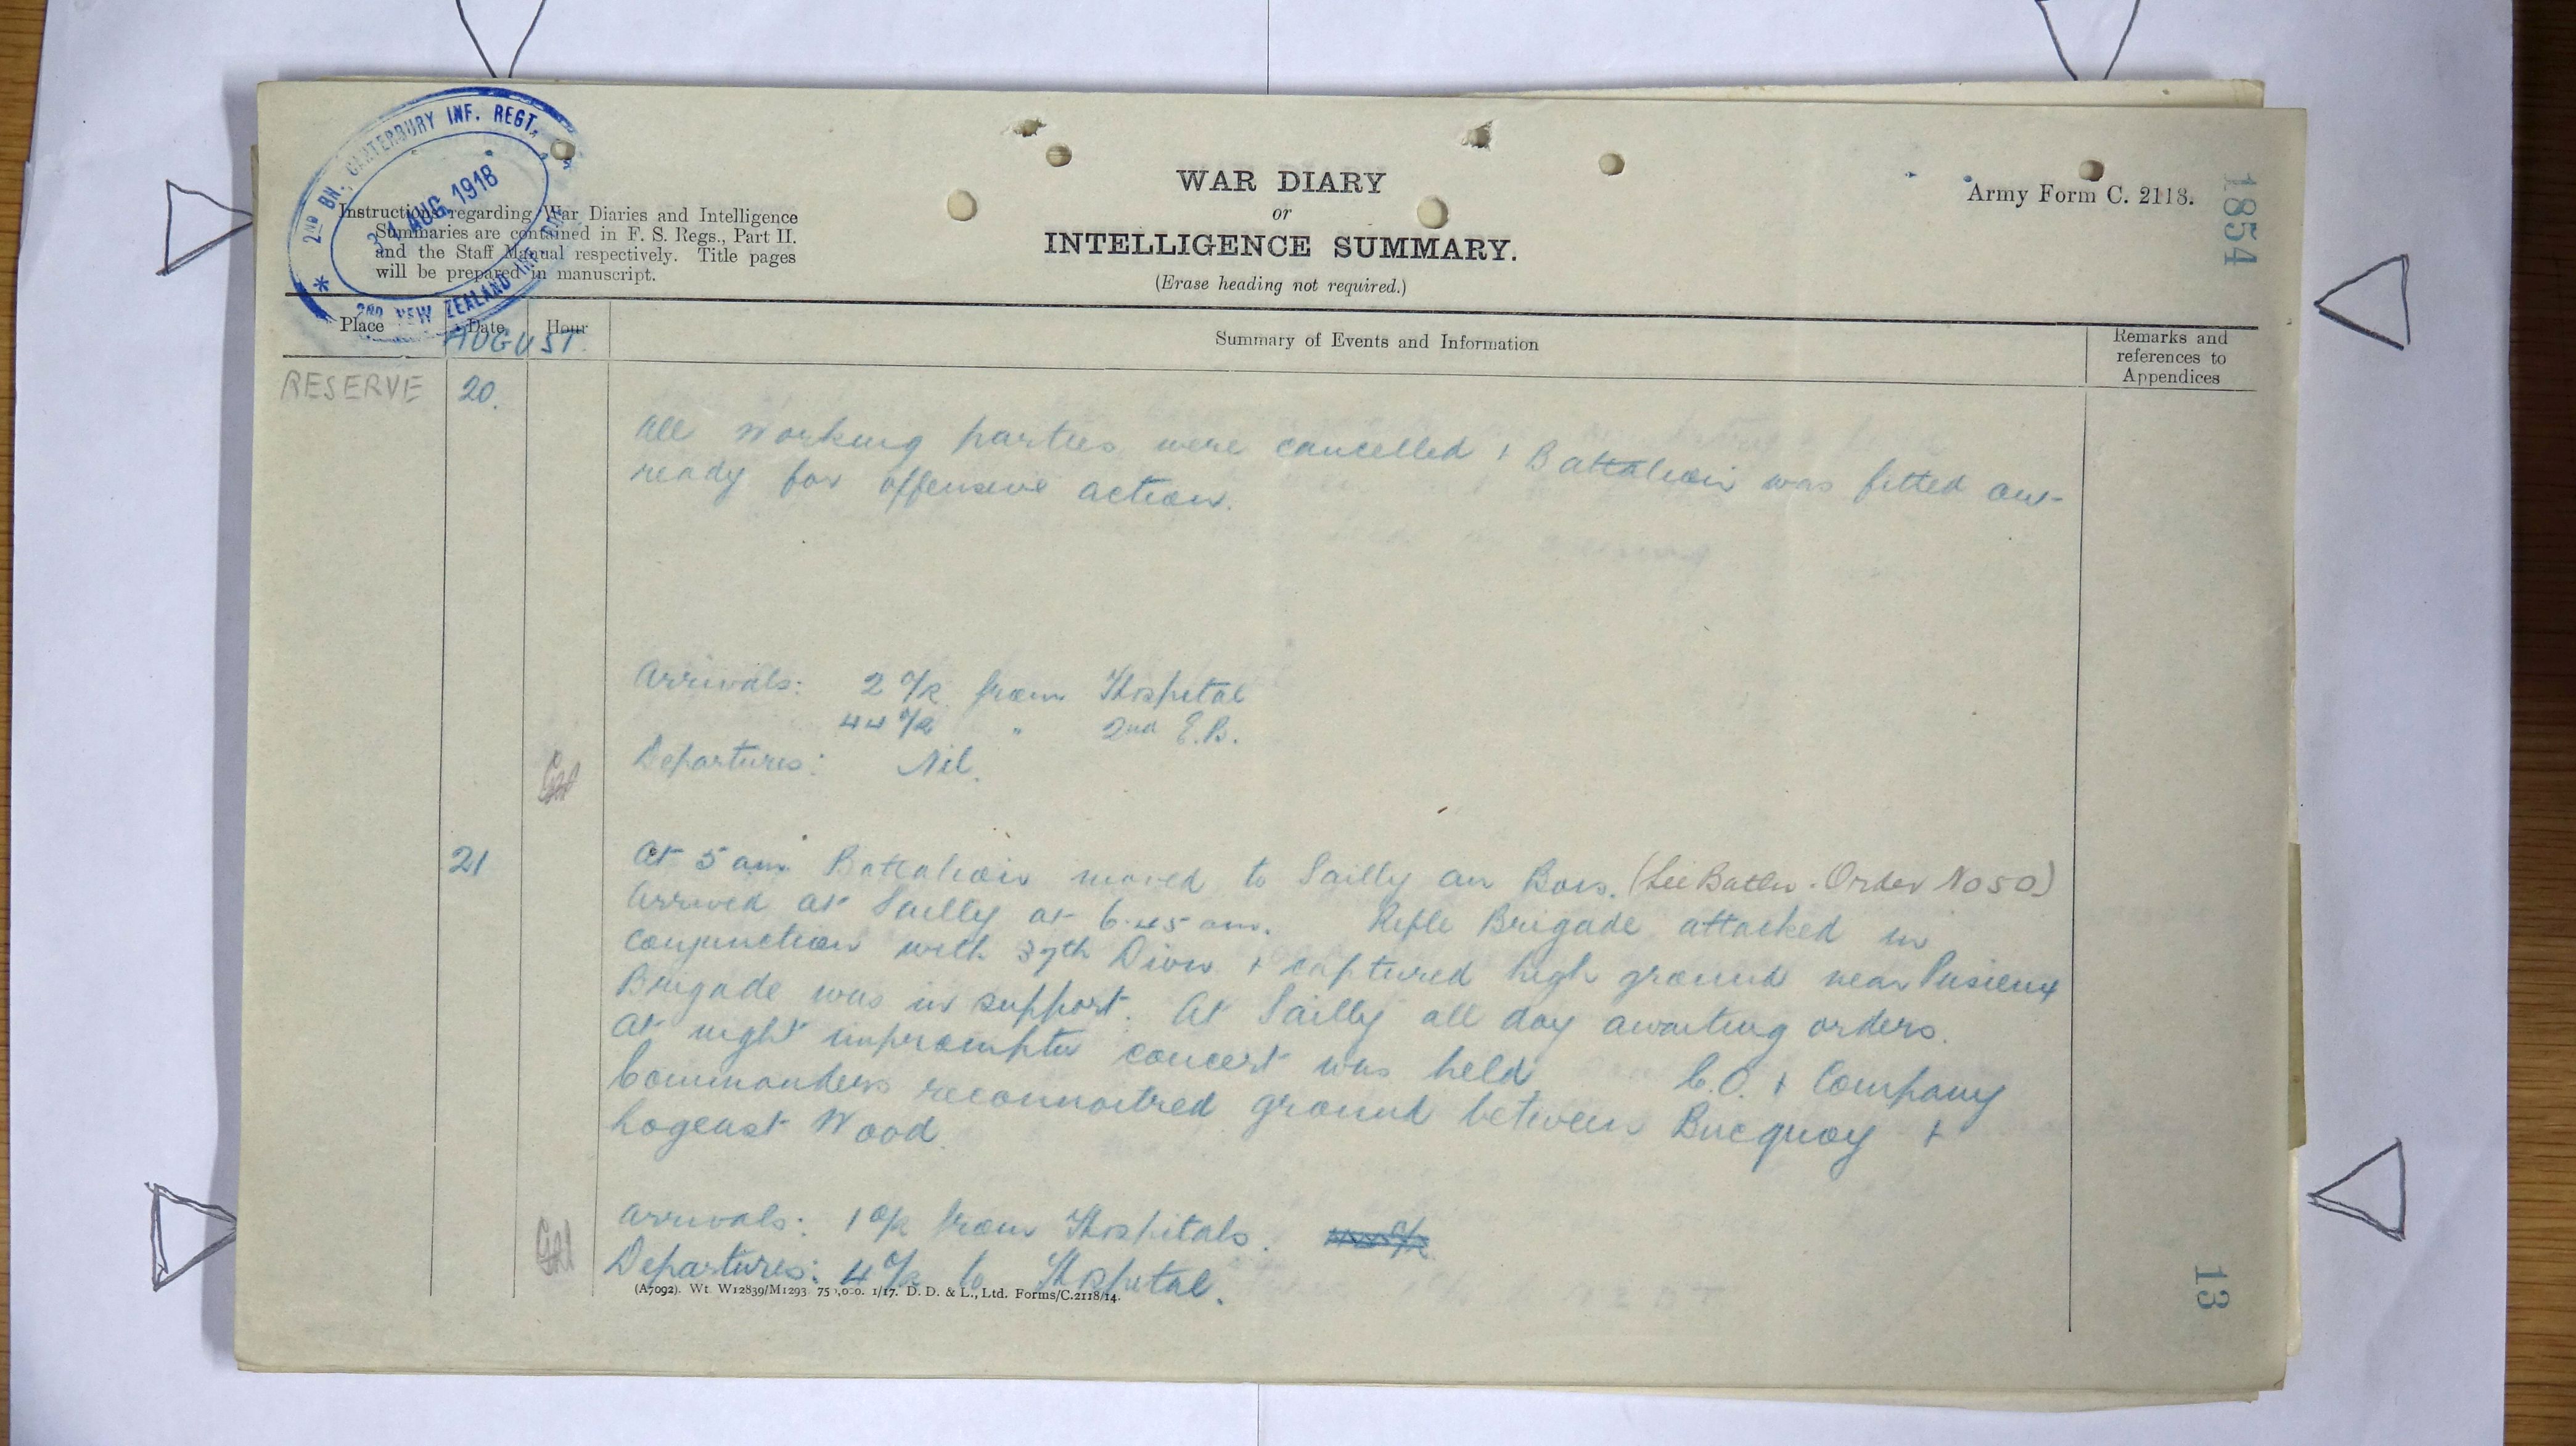 2ND BN. CANTERBURY INF. REGT.
31 AUG. 1918
2ND NEW ZEALAND INF.
Instructions regarding War Diaries and Intelligence
Summaries are contained in F. S. Regs., Part II.
and the Staff Manual respectively. Title pages
will be prepared in manuscript.
WAR DIARY
or
INTELLIGENCE SUMMARY.
(Erase heading not required.)
Army Form C. 2118.
1854
Place Date Hour Summary of Events and Information Remarks and
references to
Appendices
AUGUST
RESERVE 20.
All working parties were cancelled + Battalion was fitted out
ready for offensive action.
Arrivals: 2 O/R from Hospital
44 O/R " 2nd E.B.
Departures: Nil.
21 At 5 am Battalion moved to Sailly au Bois. (See Battn. Order No 50)
Arrived at Sailly at 6.45 am. Rifle Brigade attacked in
conjunction with 37th Divn + captured high ground near Pusieux
Brigade was in support. At Sailly all day awaiting orders.
At night impromptu concert was held C.O. + Company
Commanders reconnoitred ground between Bucquoy +
Logeast Wood.
Arrivals: 1 O/R from Hospitals.
Departures: 4 O/R to Hospital.
(A7092). Wt. W12839/M1293 75 ,0-0. 1/17. D. D. & L., Ltd. Forms/C.2118/14.
13